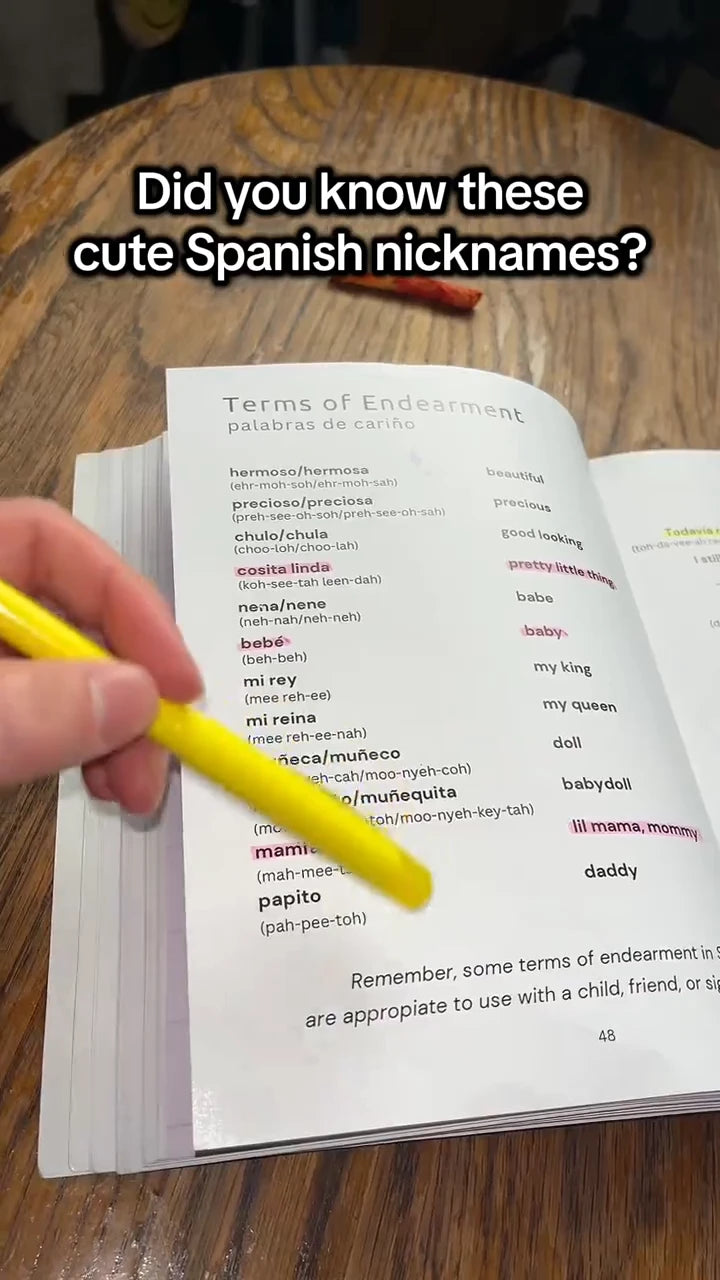 Did you know these
cute Spanish nicknames?
Terms of Endearment
palabras de cariño
hermoso/hermosa beautiful
(ehr-moh-soh/ehr-moh-sah)
precioso/preciosa precious
(preh-see-oh-soh/preh-see-oh-sah)
chulo/chula good looking
(choo-loh/choo-lah)
cosita linda pretty little thing
(koh-see-tah leen-dah)
nena/nene babe
(neh-nah/neh-neh)
bebé baby
(beh-beh)
mi rey my king
(mee reh-ee)
mi reina my queen
(mee reh-ee-nah)
ñeca/muñeco doll
yeh-cah/moo-nyeh-coh)
o/muñequita babydoll
toh/moo-nyeh-key-tah)
mami lil mama, mommy
(mah-mee-t
papito daddy
(pah-pee-toh)
Remember, some terms of endearment in S
are appropiate to use with a child, friend, or sig
48
Todavía
I still